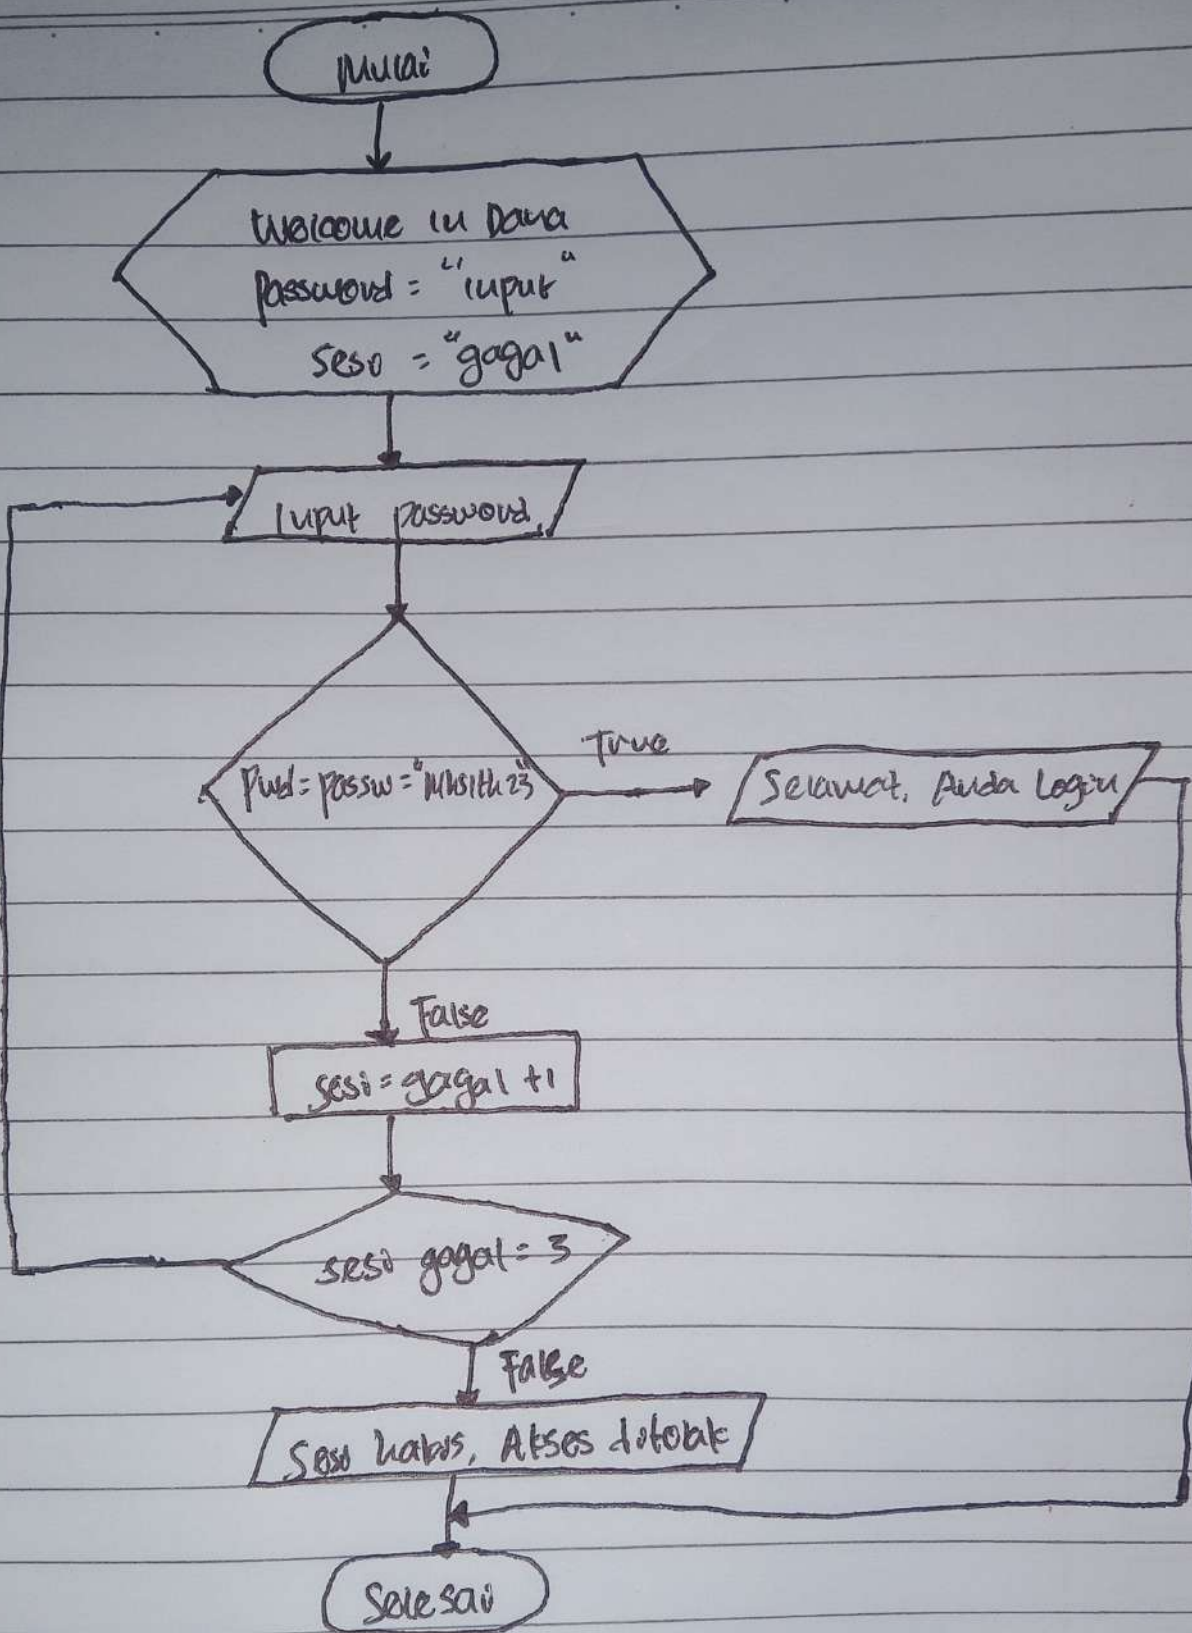 Mulai
Welcome in Dana
Password = "input"
sesi = "gagal"
Input password
True
Pwd = passw =
Selamat, Anda Login
False
sesi = gagal +1
sesi gagal = 3
False
Sesi habis, Akses ditolak
Selesai